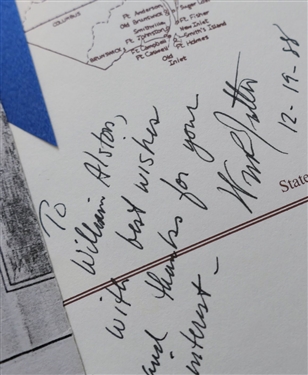 COLUMBUS
BRUNSWICK
Ft. Anderson
Old Brunswick
Smithville
Ft. Johnston
Ft. Campbell
Ft. Caswell
Old
Inlet
Sugar Loaf
Ft. Fisher
New Inlet
Smith's Island
Ft. Holmes
To
William Alston,
with best wishes
and thanks for your
interest –
12-19-88
State